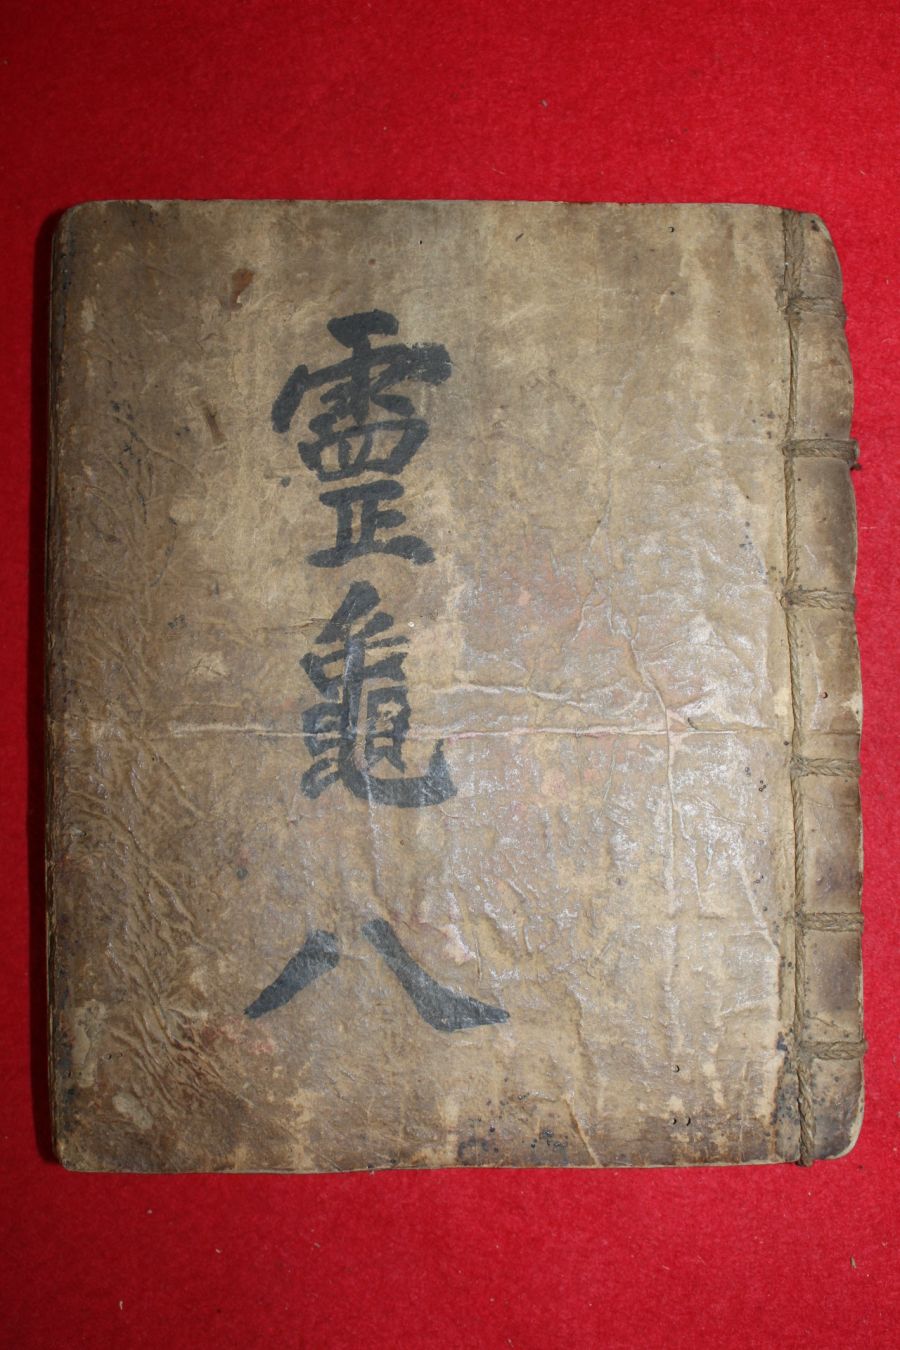 靈龜八